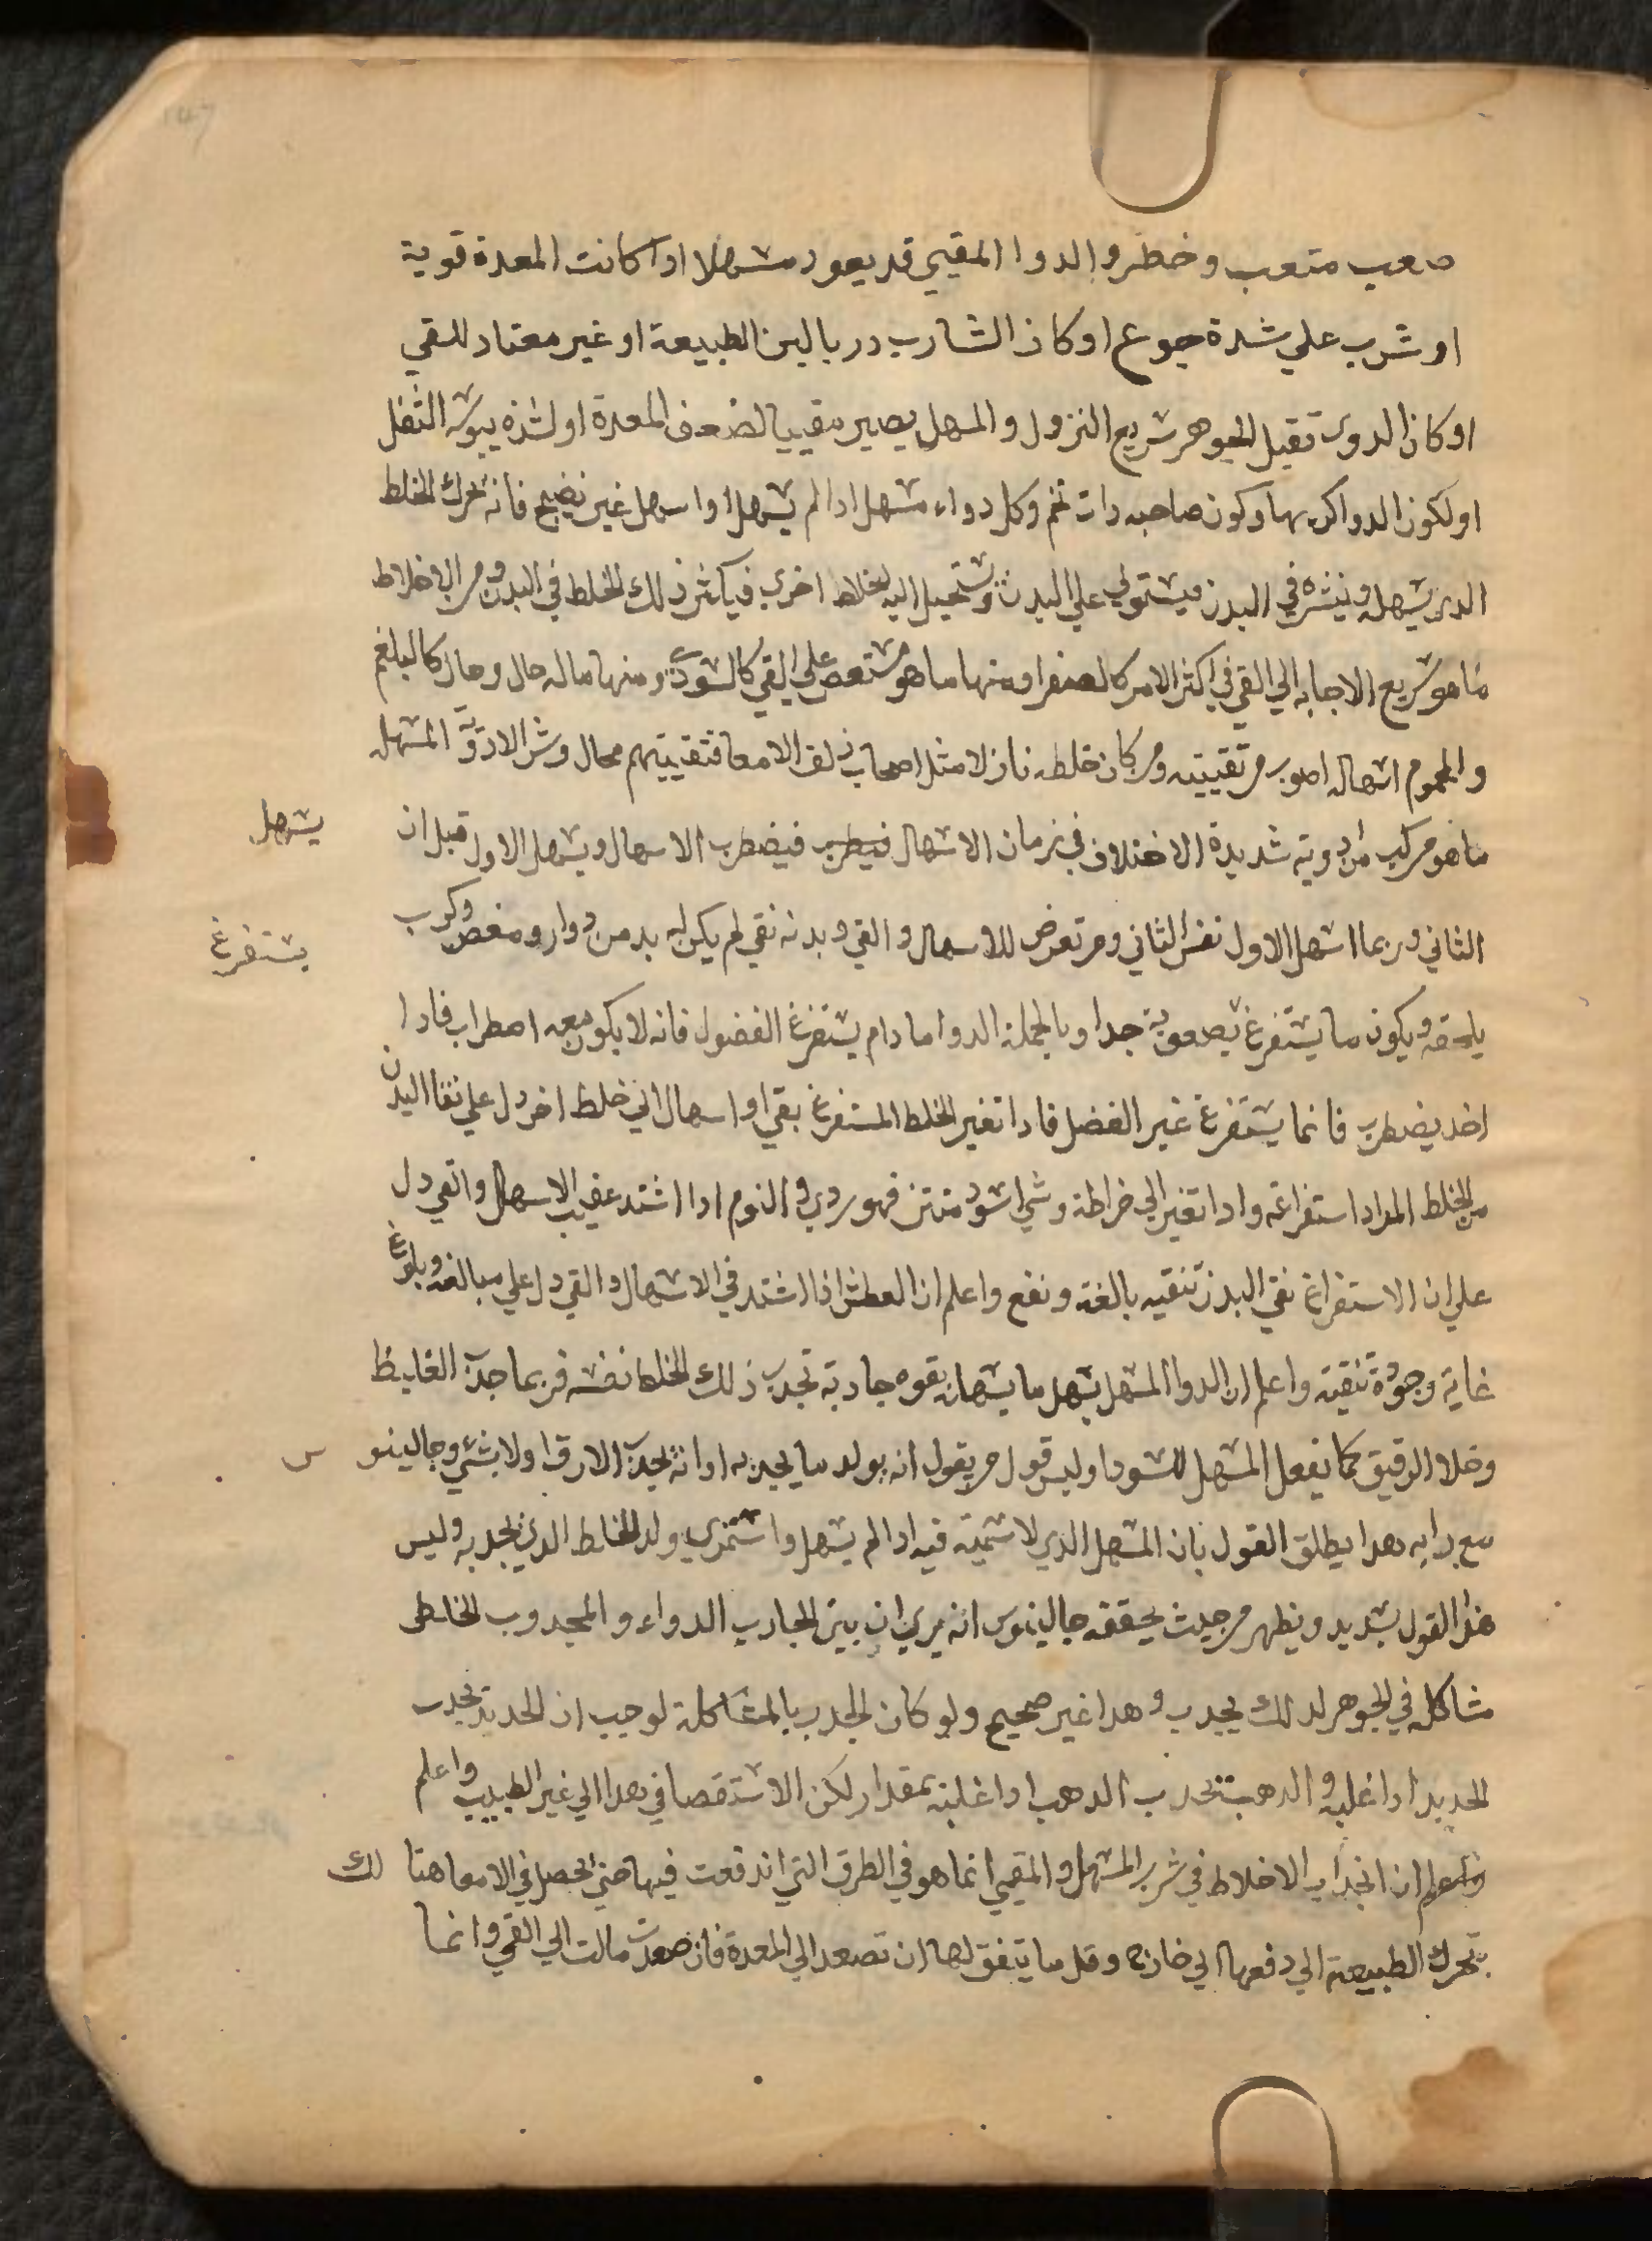 صعب متعب وخطر والدوا المقيي قد يعود مسهلا ادا كانت المعدة قوية
او شرب علي شدة جوع او كان الشارب درب البن الطبيعة او غير معتاد للقي
او كان الدوى تقيل الجوهر سريع النزول والمسهل يصير مقييا لضعف المعدة او لشدة يبوسة الثفل
او لكون الدوا كريها وكون صاحبه دات تخم وكل دواء مسهل ادا لم يسهل او اسهل غير نضيج فانه يحرك الخلط
الدى يسهله وينثره في البدن فيستولي علي البدن ويستحيل اليه اخلاط اخري فيكثر ذلك الخلط في البدن ومن الاخلاط
ما هو سريع الاجابه الي القي في اكثر الامر كالصفرا ومنها ما هو مستعص علي القي كالسودى ومنها ماله حال وحال كالبلغم
والمحموم اسهاله اصوب من تقييته ومن كان خلطه نازلا مثل اصحاب زلق الامعا فتقييتهم محال وشر الادوية المسهله
ما هو مركب من ادوية شديدة الاختلاف في زمان الاسهال فيضطرب الاسهال ويسهل الاول قبل ان يسهل
الثاني وربما اسهل الاول نفس الثاني ومن تعرض للاسهال والقي وبدنه نقي لم يكن له بد من دوار ومغص وكرب
يستفرغ
يلحقه ويكون ما يستفرغ بصعوبة جدا وبالجملة الدوا ما دام يستفرغ الفضول فانه لا يكون معه اصطراب فادا
اخد يضطرب فانما يستفرغ غير الفضل فادا تغير الخلط المستفرغ بقي او اسهال الي خلط اخر دل علي نقا البدن
من الخلط المراد استفراغه وادا تغير الي خراطة وشي اسود منتن فهو ردي والنوم ادا اشتد عقيب الاسهال والقي دل
علي ان الاستفراغ نقي البدن تنقيه بالغة ونفع واعلم ان العطش اذا اشتد في الاسهال والقي دل علي مبالغه وبلوغ
غاية وجودة تنقية واعلم ان الدوا المسهل يسهل ما يسهله بقوه جادبة تجدب ذلك الخلط نفسه فربما جدب الغليظ
وخلا الرقيق كما يفعل المسهل للسودا وليس قول من يقول انه يولد ما يجذبه او انه يجدب الارق اولا بشيء وجالينوس
مع رايه هدا يطلق القول بان المسهل الذي لا سمية فيه ادا لم يسهل واستمري ولد الخلط الدي يجدبه وليس
هذا القول بسديد ويظهر من حيث يحققه جالينوس انه يري ان بين الجادب الدواء والمجدوب الخلطى
مشاكلة في الجوهر لدلك يجدب وهدا غير صحيح ولو كان الجدب بالمشاكلة لوجب ان الحديد يجدب
الحديد ادا غلبه والدهب يجدب الدهب ادا غلبه بمقدار لكن الاستقصا في هدا الي غير الطبيب واعلم
واعلم ان انجداب الاخلاط في شرب المسهل والمقيي انما هو في الطرق التي اندفعت فيها حتي يحصل في الامعا هنالك
تتحرك الطبيعة الي دفعها الي خارج وقل ما يتفق لها ان تصعد الي المعدة فان صعدت مالت الي القي وانما